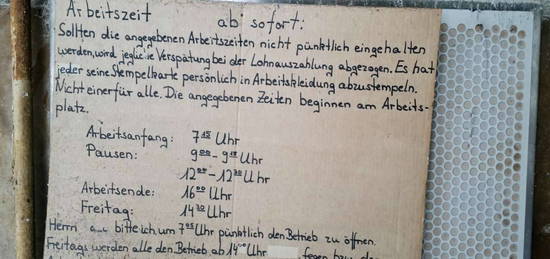 Arbeitszeit ab sofort:
Sollten die angegebenen Arbeitszeiten nicht pünktlich eingehalten
werden, wird jegliche Verspätung bei der Lohnauszahlung abgezogen. Es hat
jeder seine Stempelkarte persönlich in Arbeitskleidung abzustempeln.
Nicht einer für alle. Die angegebenen Zeiten beginnen am Arbeits-
platz.
Arbeitsanfang: 7 15 Uhr
Pausen: 9 00 - 9 15 Uhr
12 00 - 12 30 Uhr
Arbeitsende: 16 00 Uhr
Freitag: 14 30 Uhr
Herrn bitte ich um 7 Uhr pünktlich den Betrieb zu öffnen.
Freitags werden alle den Betrieb ab 14 Uhr fegen bzw.